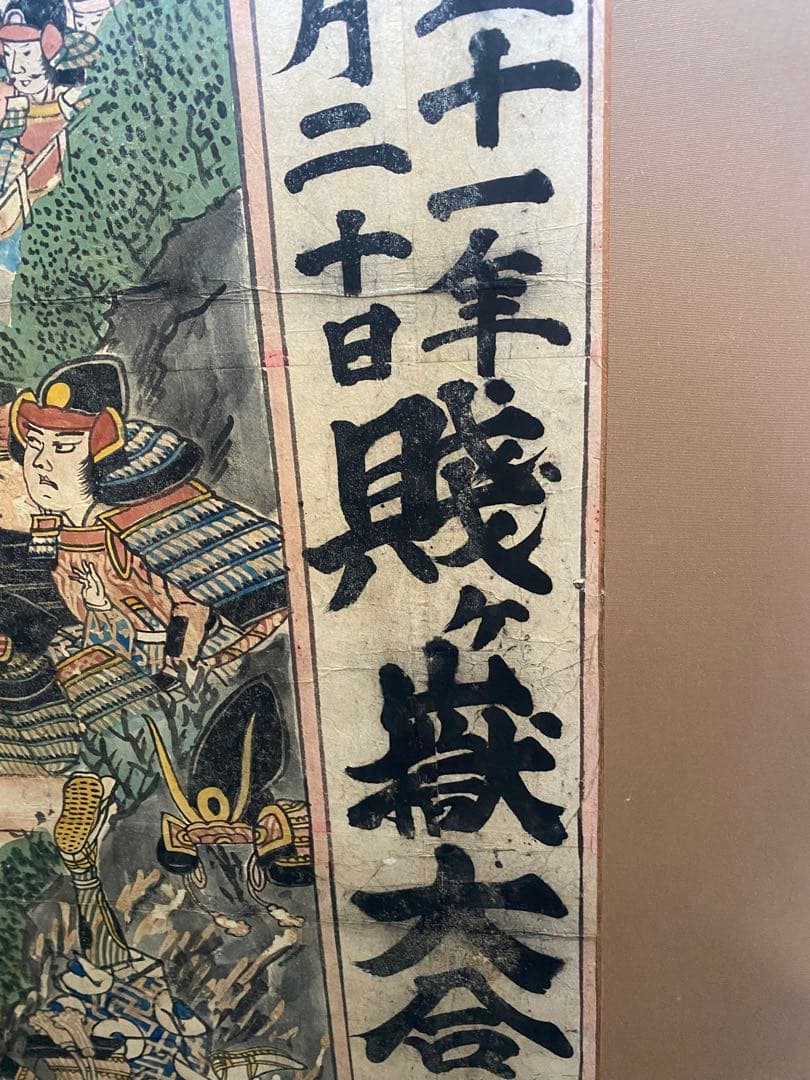 十一年
月二十日
賤ヶ嶽大合